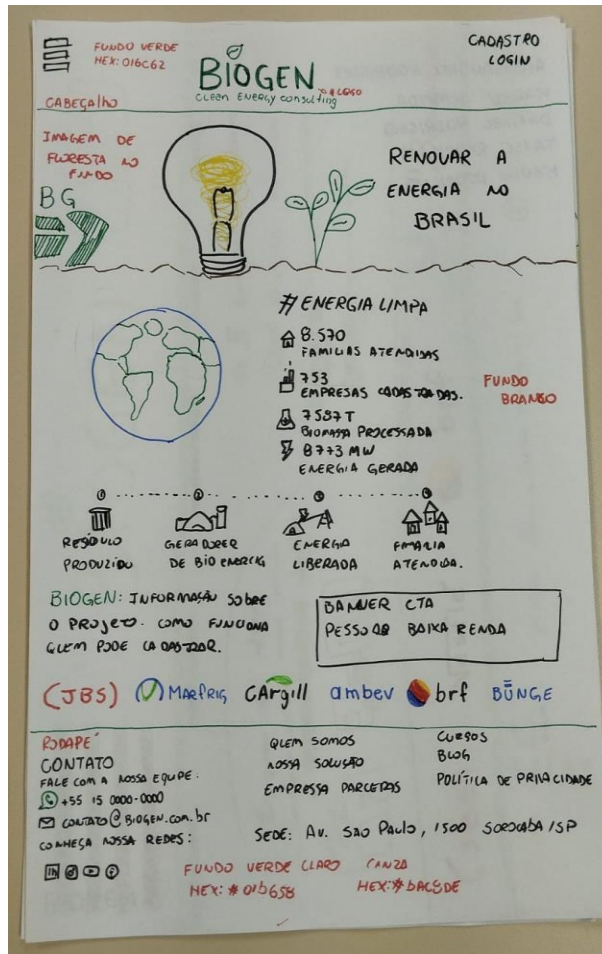 FUNDO VERDE
HEX: 016C62
CADASTRO
LOGIN
BIOGEN
CLEAN ENERGY consulting
LOGO
CABEÇAlho
IMAGEM DE
FLORESTA NO
FUNDO
BG
RENOVAR A
ENERGIA NO
BRASIL
# ENERGIA LIMPA
8.570
FAMILIAS ATENDIDAS
753
EMPRESAS CADASTRADAS.
7587 T
BIOMASSA PROCESSADA
8773 MW
ENERGIA GERADA
FUNDO
BRANCO
RESÍDUO
PRODUZIDO
GERADORER
DE BIO ENERGIG
ENERGIA
LIBERADA
FMALIA
ATENDIDA.
BIOGEN: INFORMAÇÃO SOBRE
O PROJETO. COMO FUNCIONA
QUEM PODE CADASTRAR.
BANNER CTA
PESSOAS BAIXA RENDA
(JBS) MARFRIG CArgill ambev brf BŪNGE
RODAPÉ
CONTATO
FALE COM A NOSSA EQUPE:
+55 15 0000-0000
CONTATO@BIOGEN.COM.br
CONHEÇA NOSSA REDES:
in
QUEM SOMOS
NOSSA SOLUÇÃO
EMPRESSA PARCERAS
CURSOS
BLOG
POLÍTICA DE PRIVACIDADE
SEDE: AV. SAO PAULO, 1500 SOROCABA/SP
FUNDO VERDE CLARO
HEX: # 01b658
CINZA
HEX:# bAC8DE